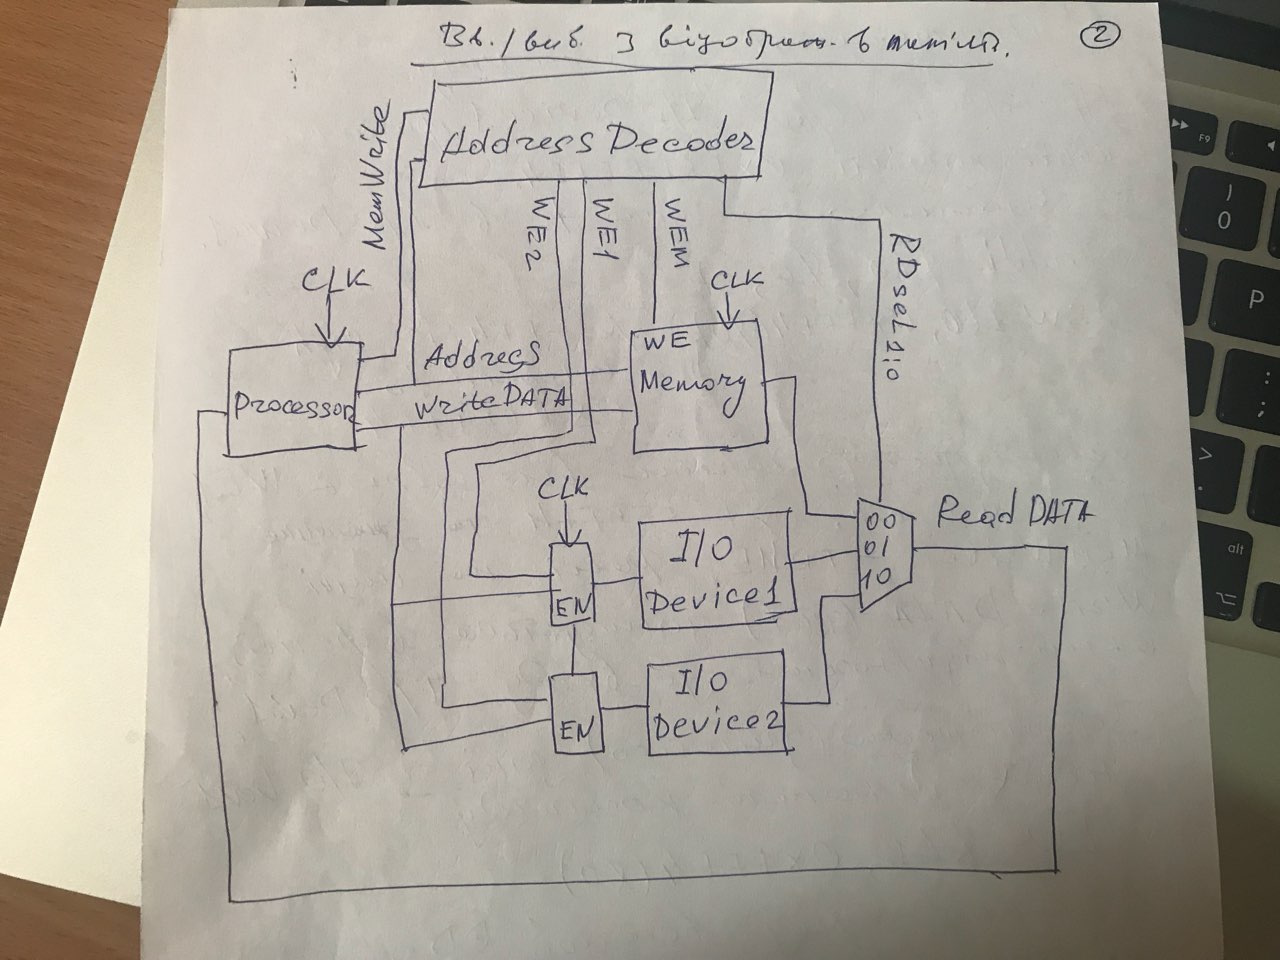 Вв./вив. з відображ. в пам'ять.
2
Address Decoder
MemWrite
WE2
WE1
WEM
RDsel1:0
CLK
CLK
Processor
Address
WriteDATA
WE
Memory
CLK
EN
I/O
Device1
00
01
10
Read DATA
EN
I/O
Device2
F9
)
0
P
:
;
>
.
alt